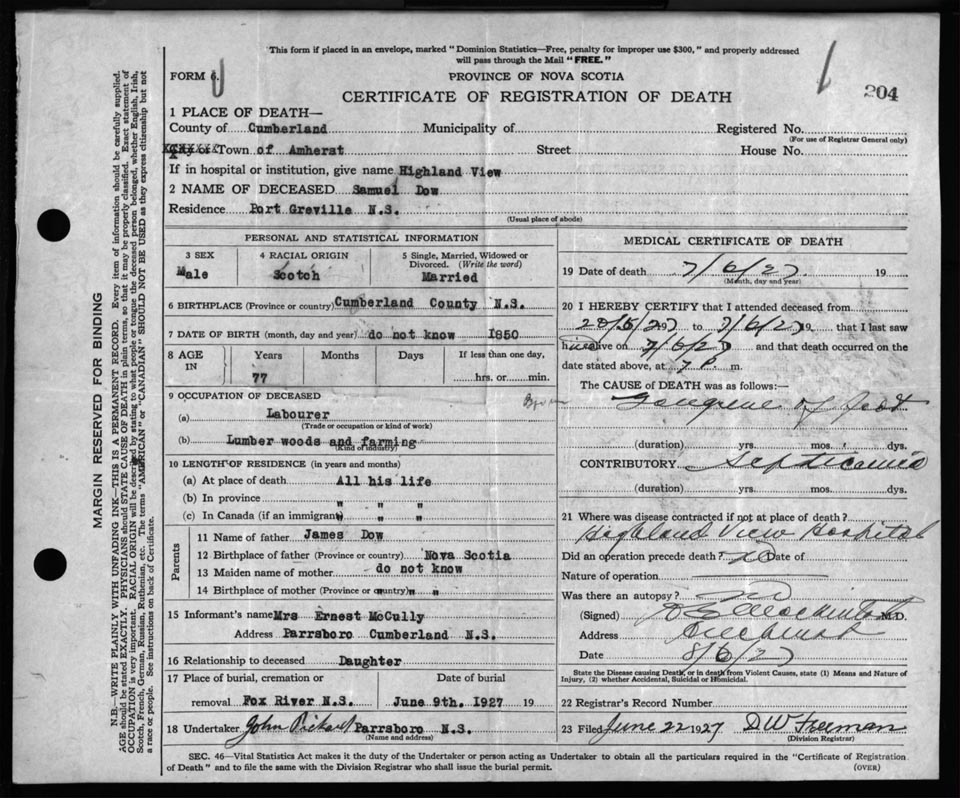 This form if placed in an envelope, marked "Dominion Statistics—Free, penalty for improper use $300," and properly addressed
will pass through the Mail "FREE."
FORM 6.
PROVINCE OF NOVA SCOTIA
204
CERTIFICATE OF REGISTRATION OF DEATH
1 PLACE OF DEATH—
County of Cumberland Municipality of Registered No.
(For use of Registrar General only)
Town of Amherst Street House No.
If in hospital or institution, give name Highland View
2 NAME OF DECEASED Samuel Dow
Residence Port Greville N.S.
(Usual place of abode)
PERSONAL AND STATISTICAL INFORMATION
3 SEX 4 RACIAL ORIGIN 5 Single, Married, Widowed or
Divorced. (Write the word)
Male Scotch Married
6 BIRTHPLACE (Province or country) Cumberland County N.S.
7 DATE OF BIRTH (month, day and year) do not know 1850
8 AGE IN Years Months Days If less than one day,
77 hrs. or min.
9 OCCUPATION OF DECEASED
(a) Labourer
(Trade or occupation or kind of work)
(b) Lumber woods and farming
(Kind of industry)
10 LENGTH OF RESIDENCE (in years and months)
(a) At place of death All his life
(b) In province " " "
(c) In Canada (if an immigrant) " " "
Parents
11 Name of father James Dow
12 Birthplace of father (Province or country) Nova Scotia
13 Maiden name of mother do not know
14 Birthplace of mother (Province or country) " "
15 Informant's name Mrs Ernest McCully
Address Parrsboro Cumberland N.S.
16 Relationship to deceased Daughter
17 Place of burial, cremation or Date of burial
removal Fox River N.S. June 9th. 1927 19
18 Undertaker John Pickart Parrsboro N.S.
(Name and address)
MEDICAL CERTIFICATE OF DEATH
19 Date of death 7/6/27. 19
(Month, day and year)
20 I HEREBY CERTIFY that I attended deceased from
28/5/27 to 7/6/27 19 that I last saw
alive on 7/6/27 and that death occurred on the
date stated above, at 7 P. m.
The CAUSE of DEATH was as follows:
Gangrene of foot
(duration) yrs. mos. dys.
CONTRIBUTORY Septicaemia
(duration) yrs. mos. dys.
21 Where was disease contracted if not at place of death?
Highland View Hospital
Did an operation precede death? no Date of
Nature of operation
Was there an autopsy? no
(Signed) Mackintosh M.D.
Address Amherst
Date 8/6/27
State the Disease causing Death, or in death from Violent Causes, state (1) Means and Nature of
Injury, (2) whether Accidental, Suicidal or Homicidal.
22 Registrar's Record Number
23 Filed June 22 1927 D W Freeman
(Division Registrar)
SEC. 46—Vital Statistics Act makes it the duty of the Undertaker or person acting as Undertaker to obtain all the particulars required in the "Certificate of Registration
of Death" and to file the same with the Division Registrar who shall issue the burial permit.
(OVER)
MARGIN RESERVED FOR BINDING
N.B.—WRITE PLAINLY WITH UNFADING INK—THIS IS A PERMANENT RECORD. Every item of information should be carefully supplied.
AGE should be stated EXACTLY. PHYSICIANS should STATE CAUSE OF DEATH in plain terms, so that it may be properly classified. Exact statement of
OCCUPATION is very important. RACIAL ORIGIN will be described by stating to what people or tongue the deceased person belonged, whether English, Irish,
Scotch, French, German, Russian, Ruthenian, etc. The terms "AMERICAN" or "CANADIAN" SHOULD NOT BE USED as they express citizenship but not
a race or people. See instructions on back of Certificate.